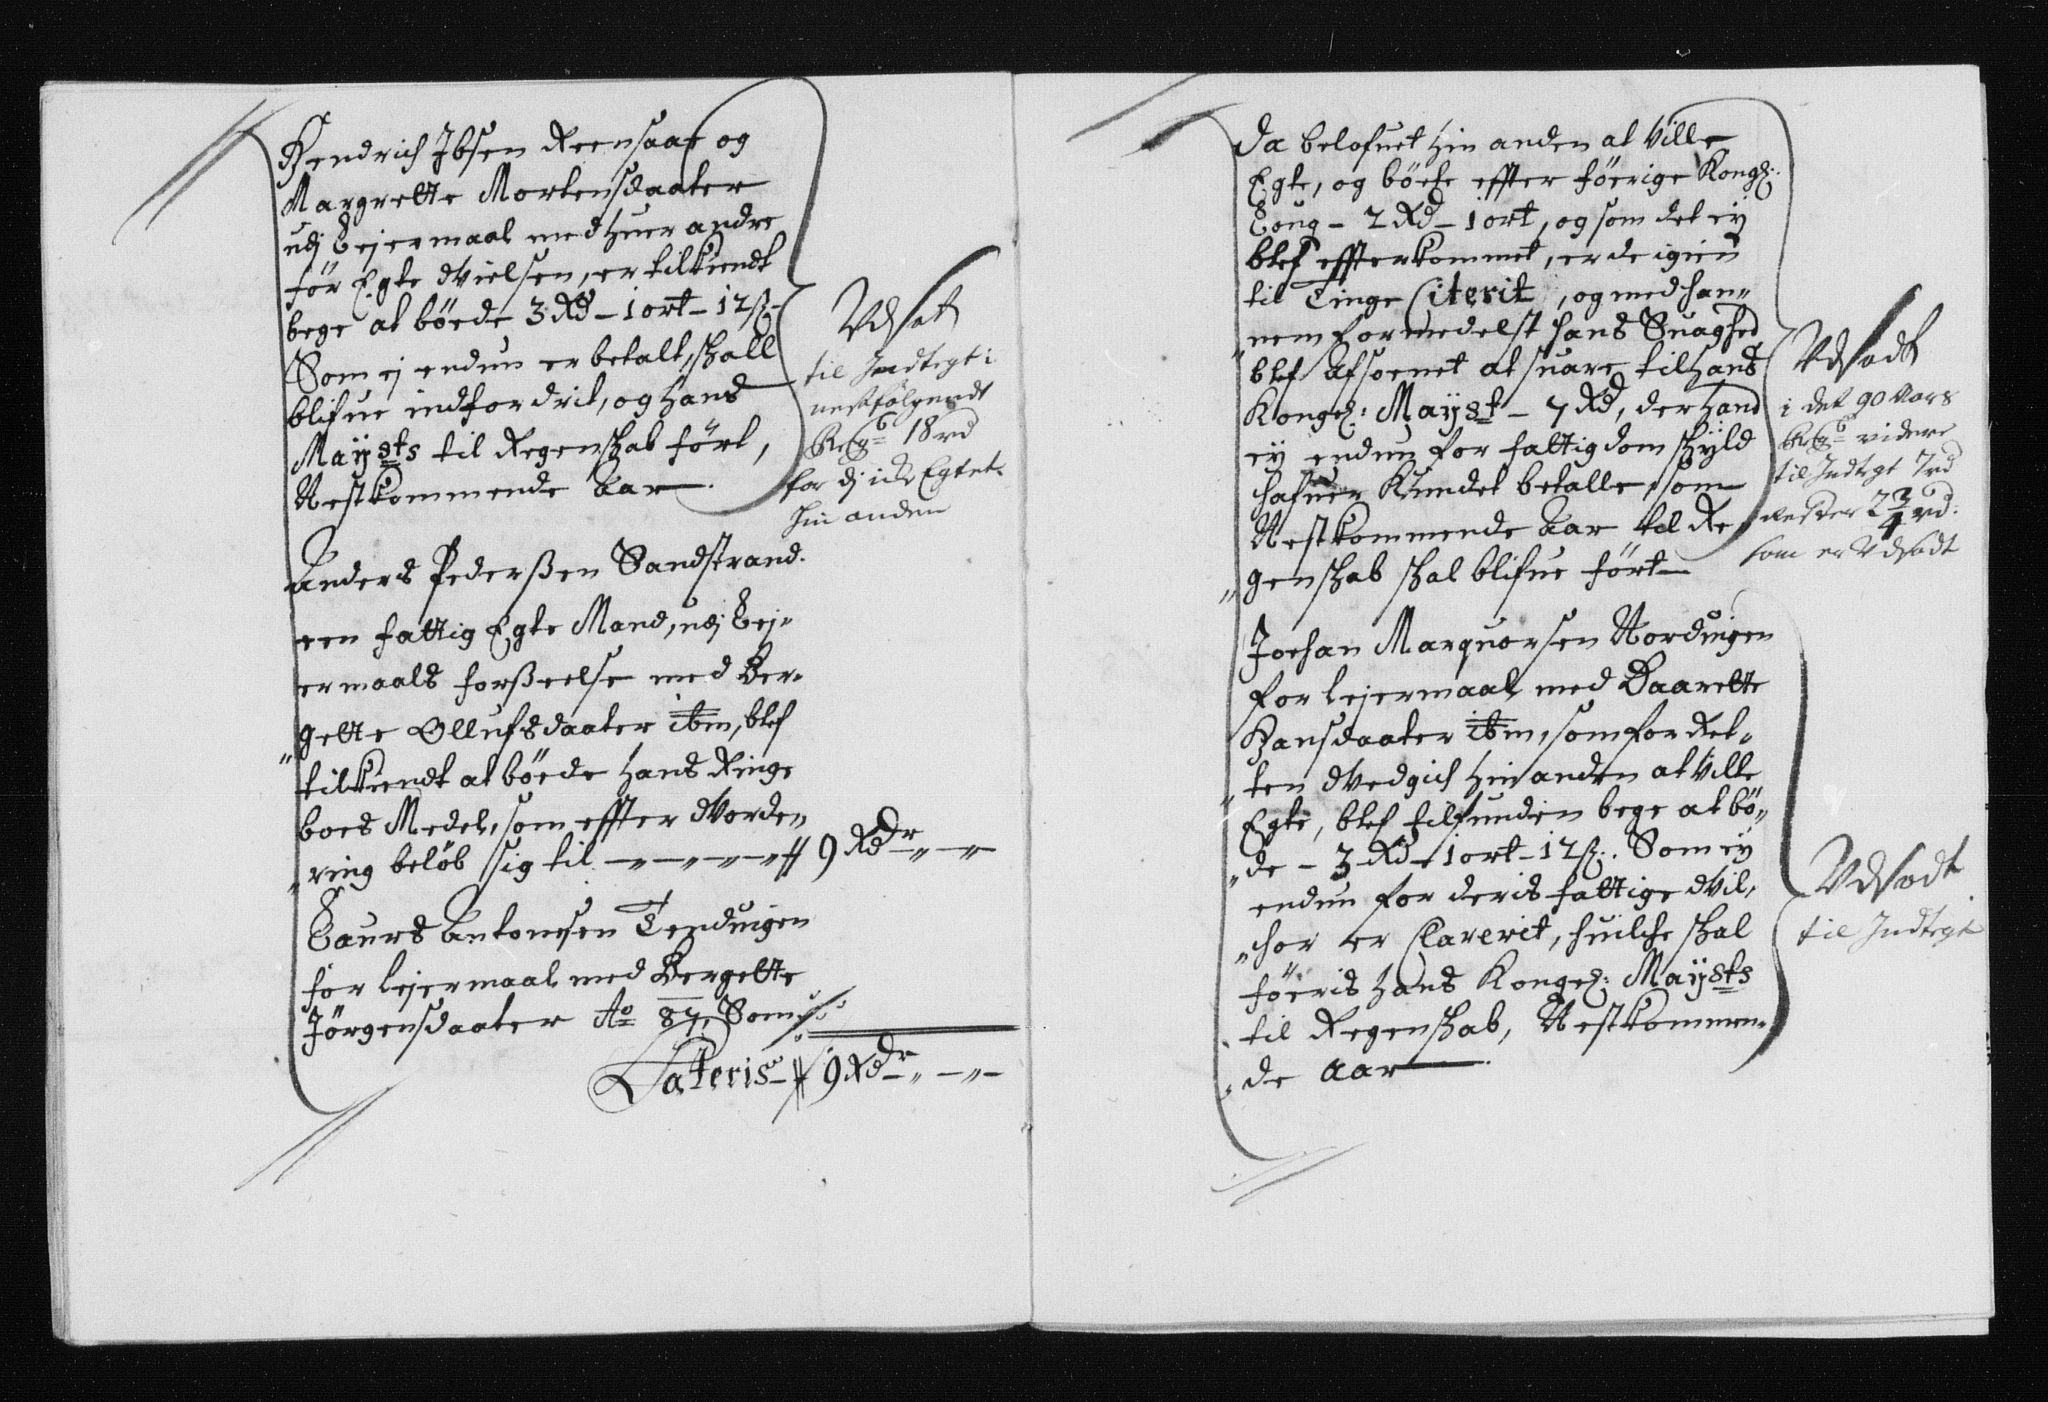 Hendrich Ibsen Reensaae og
Margrette Mortensdaater
udj Lejermaal med huer andre
før Egte Vielsen, er tilkiendt
bege at bøede 3 Rd – 1 ort – 12 ß –
Som ej endnu er betalt, schall
blifue indfordrit, og hans
Mayets til Regenschab ført,
Nestkommende Aar.
Vdsat
til Indtegt i
nestfølgende
18 rd
for dj icke Egtet
hin anden
Anders Pederßen Sandstrand
een fattig Egte Mand, udj Lej-
ermaals forßeelse med Ber-
"gette Ollufsdaater ibm, blef
tilkiendt at bøede hans Ringe
boes Medel, som effter Vorde-
"ring beløb sig til – " – " – " – 9 Rdr – " – " –
Laurs Antonisen Tenduigen
for Lejermaal med Bergette
Jørgensdaater Ao 87, Som
Lateris – 9 Rdr – " – " –
da belofuet hin anden at ville
Egte, og bøete effter føerige Kongl:
Loug – 2 Rd – 1 ort, og som det ey
blef effterkommet, er de igien
til Tinge Citerit, og med han-
"nem formedelst hans Suaghed
blef afsoenet at suare til hans
Kongel: Mayst – 7 Rd, der hand
ey endnu for fattigdom schyld
hafuer Kundet betalle, som
Nestkommende Aar til Re-
"genschab schal blifue ført
Vdsadt
i det 90 Aars
videre
til Indtegt 7 rd
rester 2 3/4 rd:
som er Vdsadt
Johan Marquorsen Norduigen
for Lejermaal med Daarette
Hansdaater ibm, som for Ret-
"ten Vedgich hin anden at ville
Egte, blef tilfunden bege at bø-
"de – 3 Rd – 1 ort – 12 ß. Som ey
endnu for deris fattige Vil-
"chor er Clarerit, huilche schal
føeris hans Kongel: Maysts
til Regenschab, Nestkommen-
"de Aar.
Vdsadt
til Indtegt